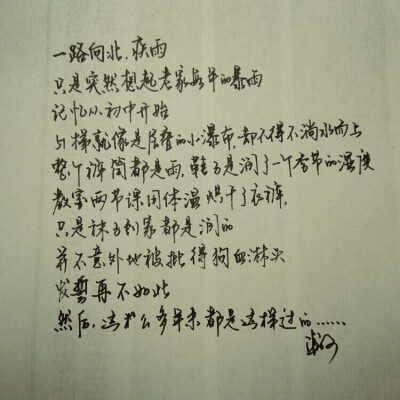 一路向北，疾雨
只是突然想起老家每年的暴雨
记忆从初中开始
楼梯就像是层叠的小瀑布，却不得不淌水而上
整个裤筒都是雨，鞋子是润了一个季节的湿度
教室两节课用体温烘干了衣裤
只是袜子到家都是润的
并不意外地被批得狗血淋头
发誓再不如此
然后，这么多年来都是这样过的……